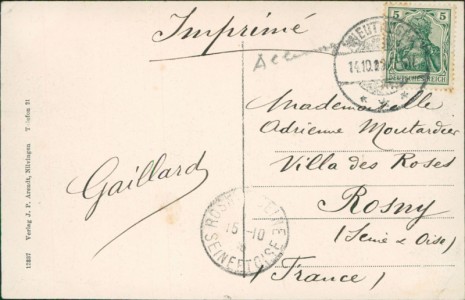 Imprimé
5 5
DEUTSCHES REICH
14.10.
Mademoiselle
Adrienne Moutardier
Villa des Roses
Rosny
(Seine & Oise)
(France)
Gaillard
15-10
SEINE ET OISE
12887 Verlag J. P. Arendt, Nilvingen Telefon 21